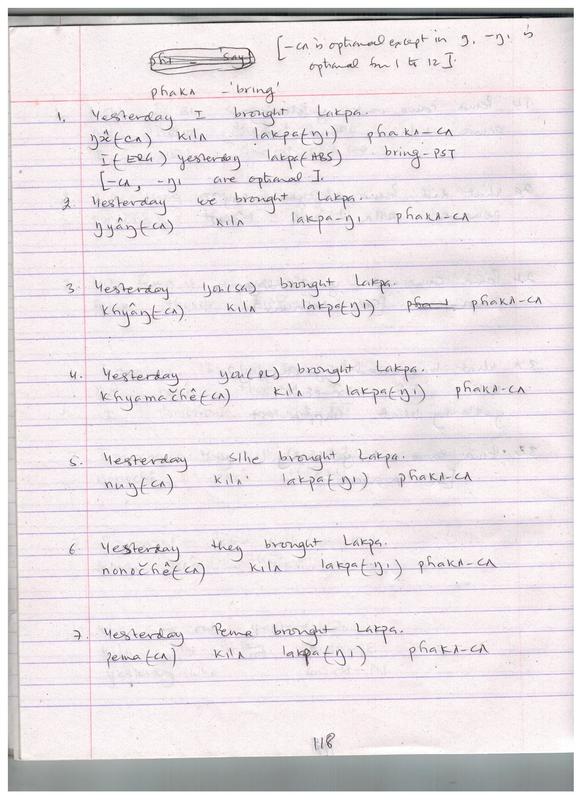 [-cʌ is optional except in 9, -ŋı is
optional for 1 to 12].
phakʌ - 'bring'
1. Yesterday I brought Lakpa.
(cʌ) kilʌ lakpa(ŋı) phakʌ-cʌ
I(ERG) yesterday lakpa(ABS) bring-PST
[-cʌ, -ŋı are optional].
2. Yesterday we brought Lakpa.
ŋyâŋ(-cʌ) kilʌ lakpa-ŋı phakʌ-cʌ
3. Yesterday you(SG) brought Lakpa.
khyâŋ(-cʌ) kilʌ lakpa(ŋı) phakʌ-cʌ
4. Yesterday you(PL) brought Lakpa.
khyamačhê(-cʌ) kilʌ lakpa(ŋı) phakʌ-cʌ
5. Yesterday s/he brought Lakpa.
nuŋ(-cʌ) kilʌ lakpa(ŋı) phakʌ-cʌ
6 Yesterday they brought Lakpa.
nonočhê(-cʌ) kilʌ lakpa(ŋı) phakʌ-cʌ
7. Yesterday Pema brought Lakpa.
pema(-cʌ) kilʌ lakpa(ŋı) phakʌ-cʌ
118